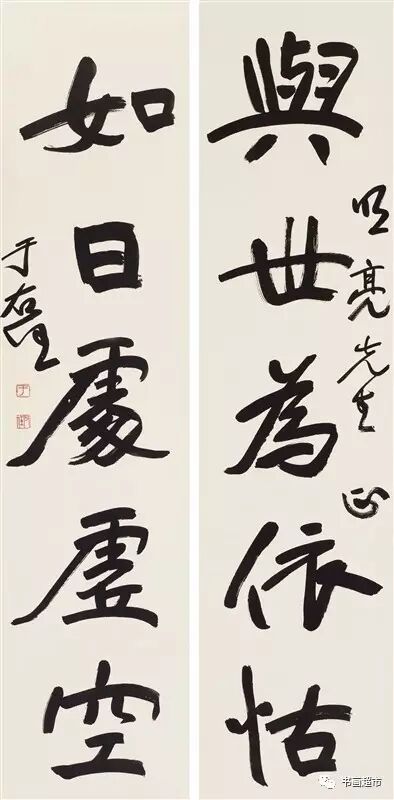 與世為依怙
明亮先生 正
如日處虛空
于右任
书画超市